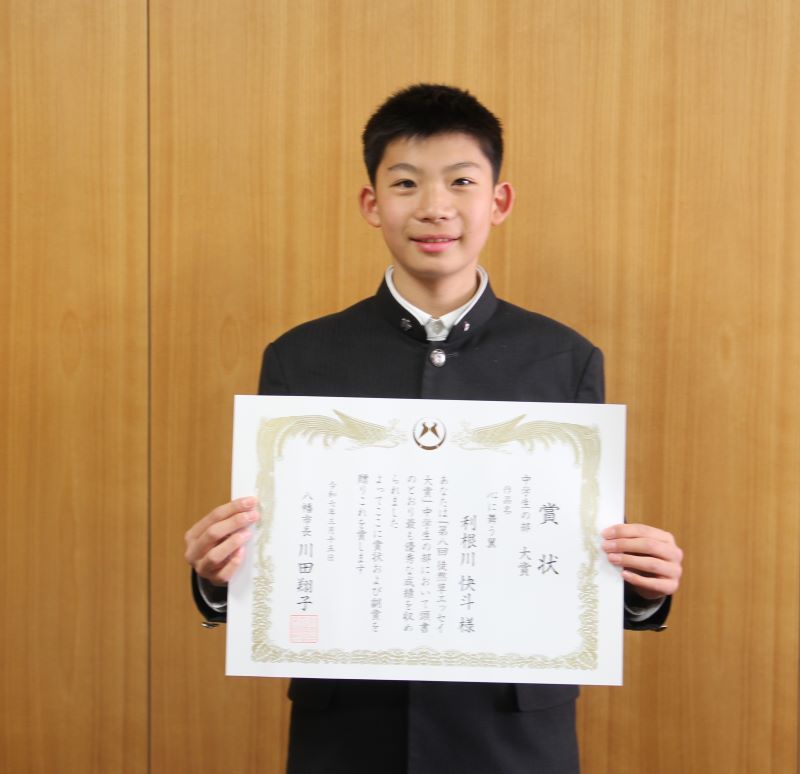 賞状
中学生の部 大賞
作品名
心に舞う翼
利根川 快斗 様
あなたは「第八回 徒然草エッセイ
大賞」中学生の部において頭書
のとおり最も優秀な成績を収め
られました
よってここに賞状および副賞を
贈りこれを賞します
令和七年三月十五日
八幡市長 川田翔子